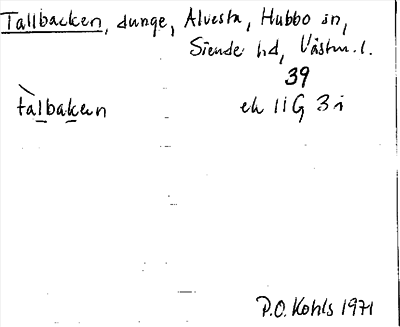 Tallbacken, dunge, Alvesta, Hubbo sn,
Siende hd, Västm. l.
39
tàlbakɐn
ek 11G 3i
P.O. Kohls 1971